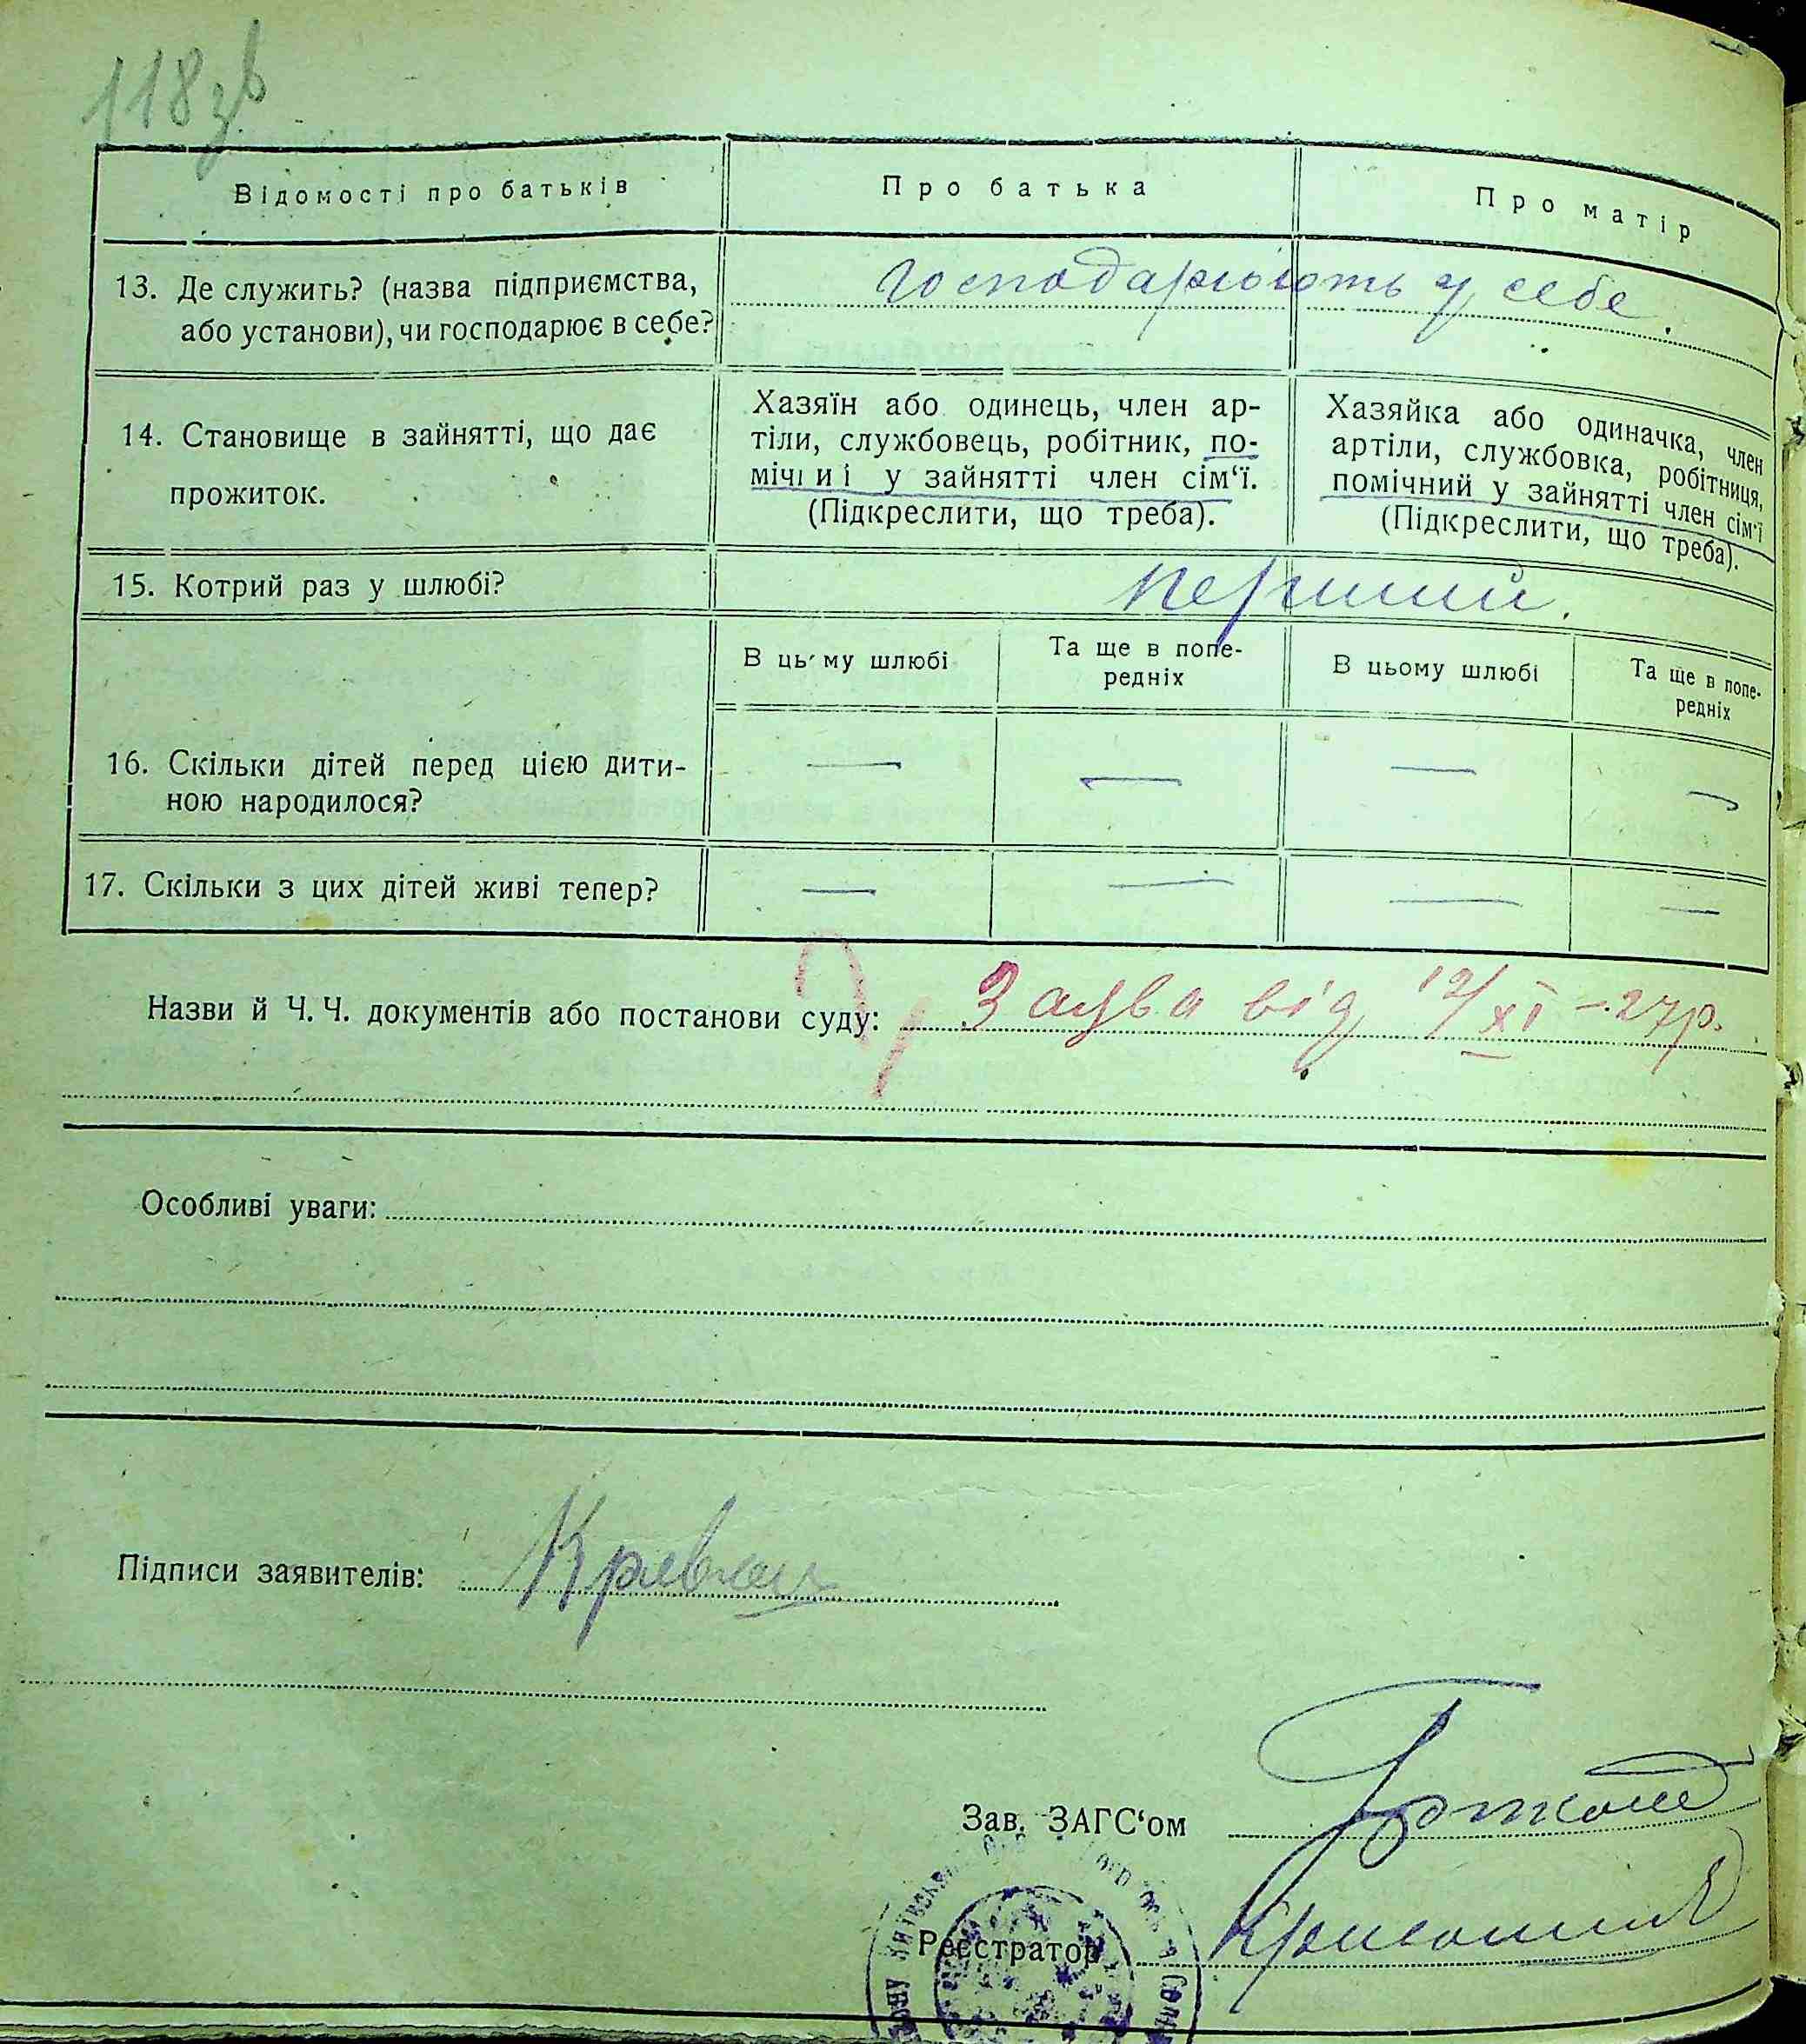 118 зв
Відомості про батьків
Про батька
Про матір
13. Де служить? (назва підприємства,
або установи), чи господарює в себе?
господарюють у себе.
14. Становище в зайнятті, що дає
прожиток.
Хазяїн або одинець, член ар-
тіли, службовець, робітник, по-
мічний у зайнятті член сім‘ї.
(Підкреслити, що треба).
Хазяйка або одиначка, член
артіли, службовка, робітниця,
помічний у зайнятті член сім‘ї
(Підкреслити, що треба).
15. Котрий раз у шлюбі?
перший.
В цьому шлюбі
Та ще в попе-
редніх
В цьому шлюбі
Та ще в попе-
редніх
16. Скільки дітей перед цією дити-
ною народилося?
— — — —
17. Скільки з цих дітей живі тепер?
— — — —
Назви й Ч. Ч. документів або постанови суду: Заява від 12/XI – 27 р.
Особливі уваги:
Підписи заявителів:
Зав. ЗАГС‘ом
Реєстратор